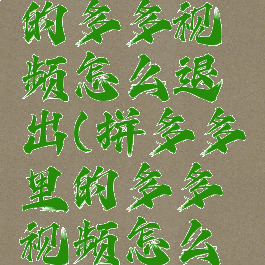 的多多视
频怎么退
出(拼多多
里的多多
视频怎么